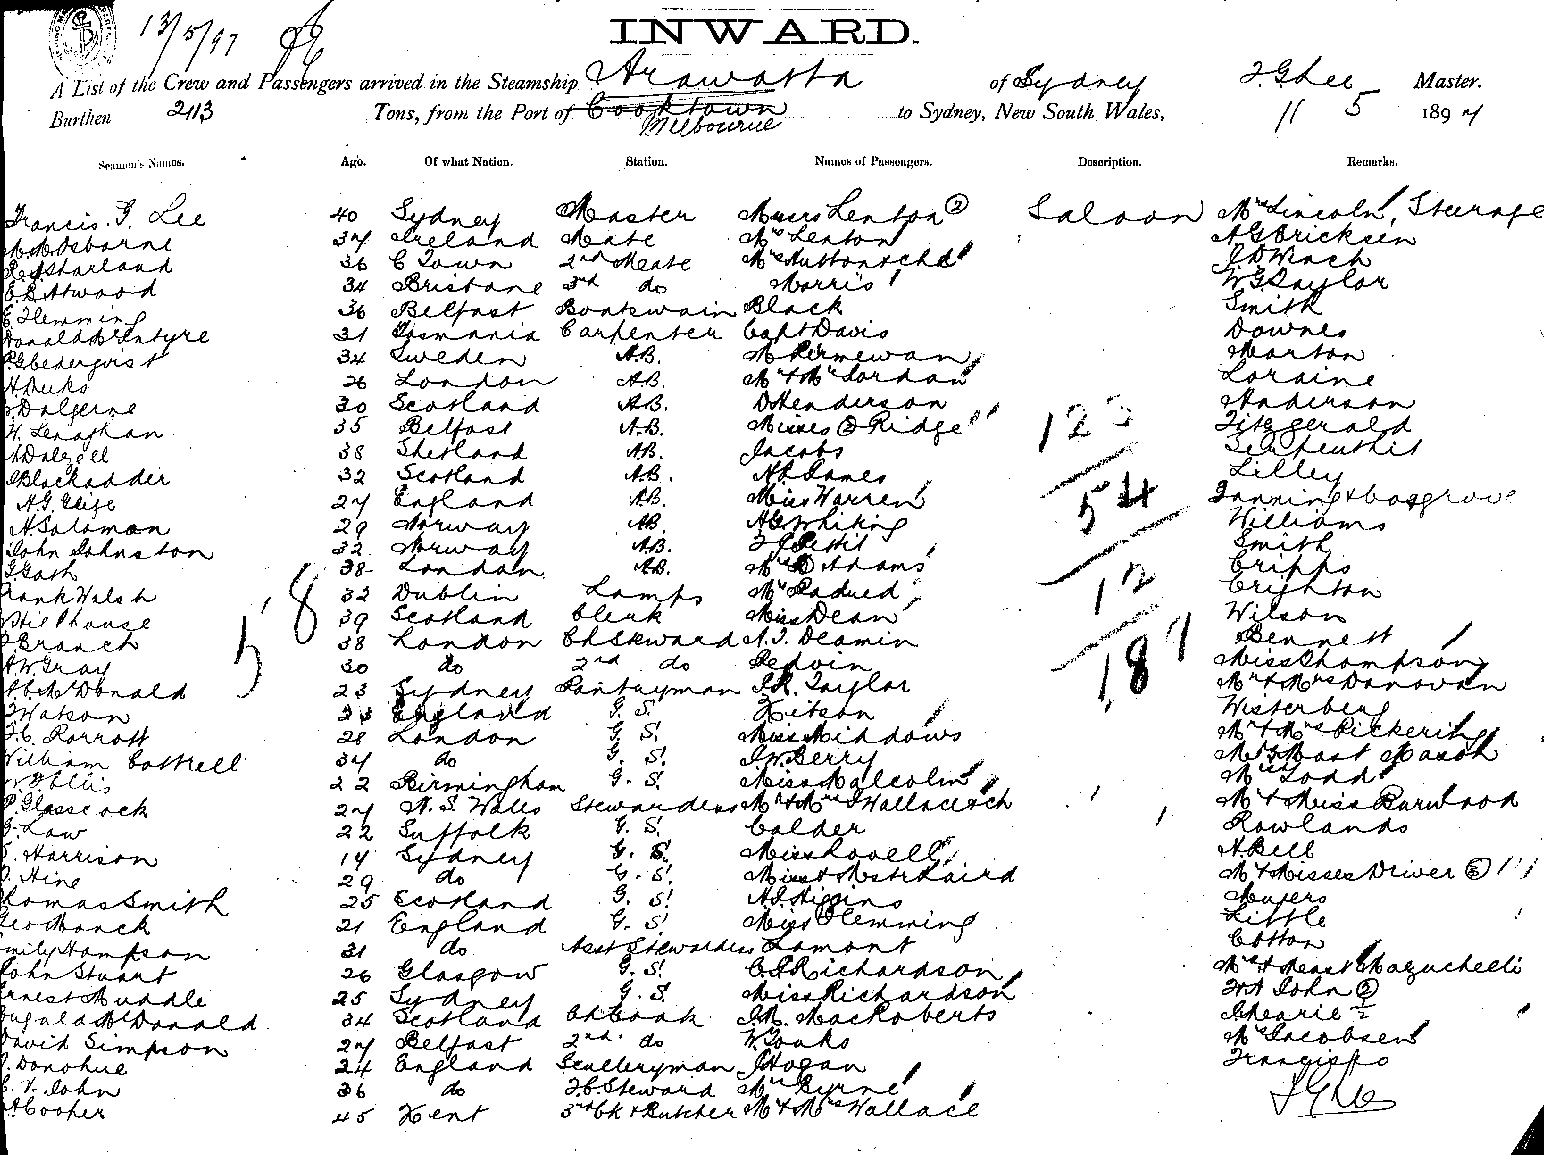 13/5/97
INWARD.
A List of the Crew and Passengers arrived in the Steamship Arawatta of Sydney F G Lee Master.
Burthen 2113 Tons, from the Port of Cooktown Melbourne to Sydney, New South Wales, 11 5 1897
Seamen's Names. Age. Of what Nation. Station. Names of Passengers. Description. Remarks.
Francis. G. Lee 40 Sydney Master Messrs Lenton 2 Saloon Mrs Lincoln, Steerage
Osborne 37 Ireland Mate Mrs Lenton A G Ericksen
Sharland 36 C Town 2nd Mate Mrs Hutton & chd J D Winch
Attwood 34 Brisbane 3rd do Morris W G Taylor
Flemming 36 Belfast Boatswain Black Smith
Donald McIntyre 31 Tasmania Carpenter Capt Davis Downes
Cedergvist 34 Sweden A.B. McPermewan Marton
Deeks 26 London A.B. Mr & Mrs Jordan Loraine
Dalgerne 30 Scotland A.B. D Henderson Anderson
H. Lenaghan 35 Belfast A.B. Misses 2 Ridge Fitzgerald
Dalzell 38 Shetland A.B. Jacobs
Blackadder 32 Scotland A.B. James Lilley
A. G. 27 England A.B. Miss Warren Fanning & Cosgrove
A Solomon 29 Norway A.B. A G Whiting Williams
John Johnston 32 Norway A.B. F J Pettit Smith
Gash 38 London A.B. Mrs Adams Cripps
Frank Walsh 33 Dublin Lamps Mrs Crighton
Stiel house 39 Scotland Clerk Miss Dean Wilson
Branch 38 London Ch Steward A. J. Deamin Bennett
A W Gray 30 do 2nd do Pedvin Miss Thompson
McDonald 23 Sydney Pantryman J. R. Taylor Mr & Mrs Donovan
Watson 33 England G. S. Kitson Westerberg
Porrott 28 London G. S. Miss Middows Mr & Mrs Pickering
William Cottrell 34 do G. S. J. W. Berry Mast Mason
Ellis 22 Birmingham G. S. Miss Malcolm Mrs Todd
Glasscock 27 N. S. Wales Stewardess Mr & Mrs Wallace & ch Mr & Miss Burwood
G. Law 22 Suffolk G. S. Calder Rowlands
Harrison 14 Sydney G. S. Miss Lovell A. Bell
Hine 29 do G. S. Miss & Mstr Laird Mr & Misses Driver
Thomas Smith 25 Scotland G. S. A. J. Higgins Myers
Geo Monck 21 England G. S. Miss Flemming Little
Emily Hampson 31 do Asst Stewardess Lamont Cotton
John Stuart 26 Glasgow G. S. C J Richardson Mrs & Mast Mazucheeli
Ernest Muddle 25 Sydney G. S. Miss Richardson John 2
Dugald McDonald 34 Scotland Ch Cook J. R. MacRoberts
David Simpson 27 Belfast 2nd do W. Tonks Mrs Jacobsen
Donohue 24 England Sculleryman Hogan Francisko
John 36 do F. C. Steward Mrs Byrne F G Lee
Cooper 45 Kent 3rd Ck & Butcher Mr & Mrs Wallace
58
123
54
12
189